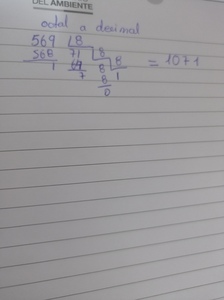 DEL AMBIENTE
octal a desimal
569 8
568 71 8
1 64 8 8 = 1071
7 8 1
0